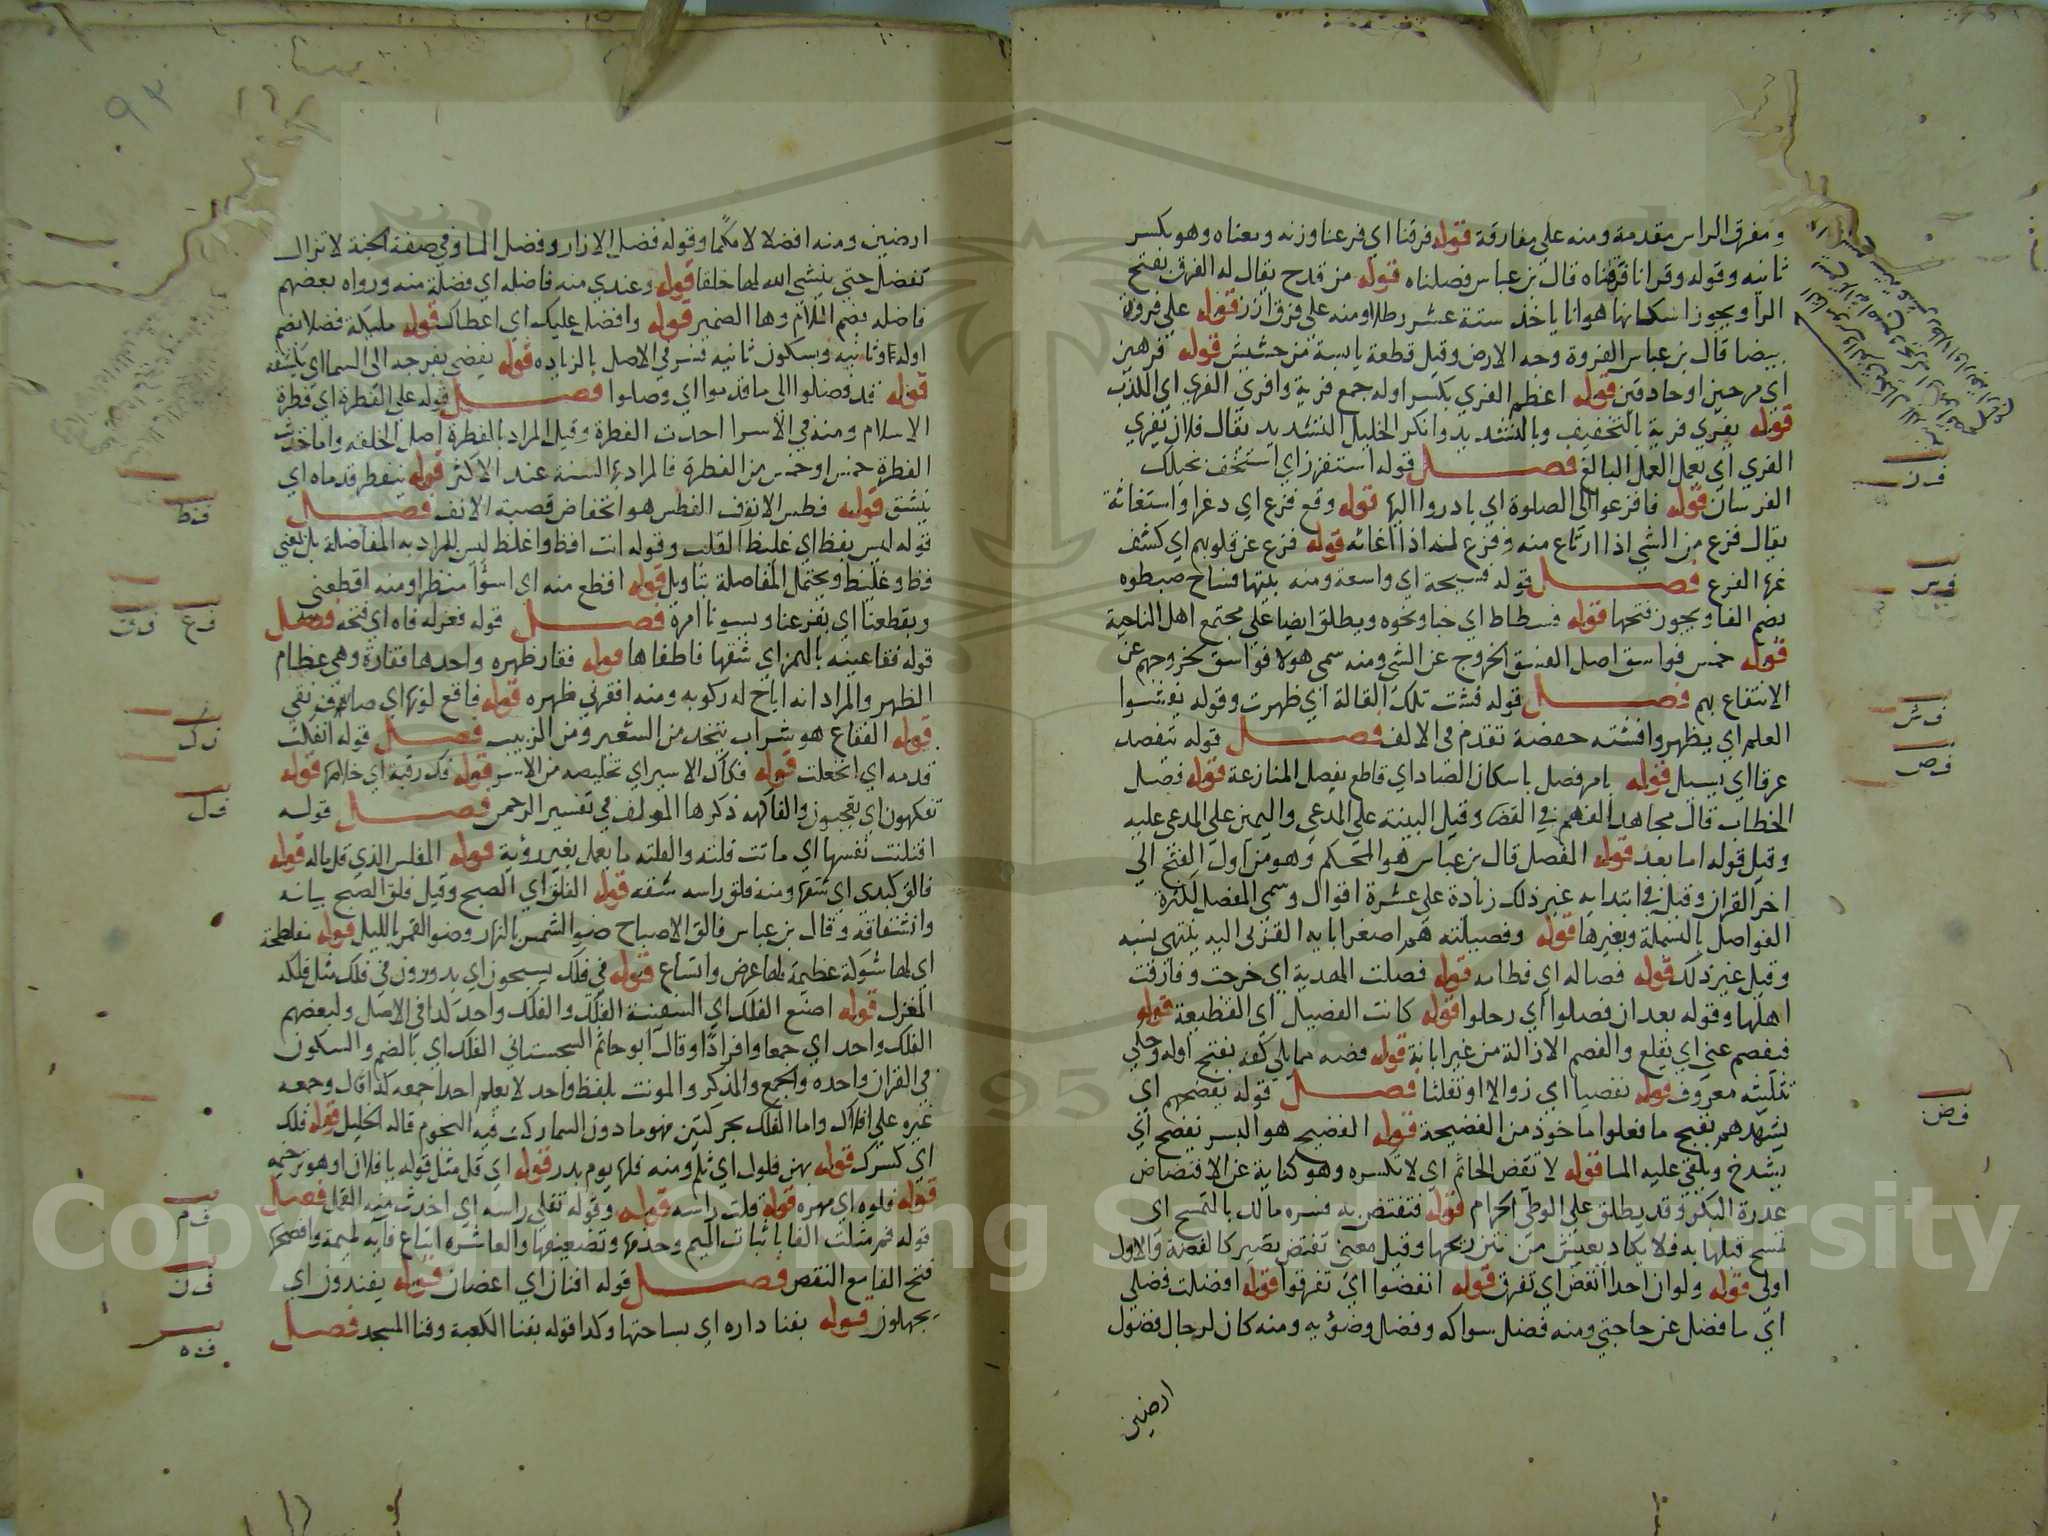 ومفرق الراس مقدمة ومنه علي مفارقة قوله فرقنا اي فرعنا وزنه ومعناه وهو بكسر
ثانيه وقوله وقرانا فرقناه قال بن عباس فصلناه قوله من قدح يقال له الفرق بفتح
الرا ويجوز اسكانها هوانا ياخذ ستة عشر رطلا ومنه علي فرق ارز قوله علي فروة
بيضا قال بن عباس الفروة وجه الارض وقيل قطعة يابسة من حشيش قوله فرهين
اي مرحين او حاذقين قوله اعظم الفري بكسر اوله جمع فرية وافري الفري اي الكذب
قوله يفري فرية بالتخفيف وبالتشديد وانكر الخليل التشديد يقال فلان يفري
الفري اي يعمل العمل البالغ فصل قوله استفزز اي استخف بخيلك
الفرسان قوله فافزعوا الى الصلوة اي بادروا اليها قوله وقع فزع اي ذعرا واستغاثة
يقال فزع من الشي اذا ارتاع منه وفزع لمنه اذا اغاثه قوله فزع عن قلوبهم اي كشف
عنها الفزع فصل قوله فسيحة اي واسعة ومنه بيتها فساح ضبطوه
بضم الفا ويجوز فتحها قوله فسطاط اي خبا ونحوه ويطلق ايضا علي مجتمع اهل الناحية
قوله خمس فواسق اصل الفسق الخروج عن الشي ومنه سمي هولا فواسق لخروجهم عن
الانتفاع بهم فصل قوله فشت تلك القالة اي ظهرت وقوله يفشوا
العلم اي يظهر وافشته حفصة تقدم في الالف فصل قوله تتفصد
عرقا اي يسيل قوله بامر فصل باسكان الصاد اي قاطع يفصل المنازعة قوله فصل
الخطاب قال مجاهد الفهم في القضا وقيل البينة علي المدعي واليمين علي المدعي عليه
وقيل قوله اما بعد قوله المفصل قال بن عباس هو المحكم وهو من اول الفتح الي
اخر القران وقيل في ابتدايه غير ذلك زيادة علي عشرة اقوال وسمي المفصل لكثرة
الفواصل بالبسملة وبغيرها قوله وفصيلته هم اصغر ابايه القربى اليه ينتهي نسبه
وقيل غير ذلك قوله فصاله اي فطامه قوله فصلت الهدية اي خرجت وفارقت
اهلها وقوله بعد ان فصلوا اي رحلوا قوله كانت الفصيل اي القطيعة قوله
فيفصم عني اي يقلع والفصم الازالة من غير ابانة قوله فصه مما يلي كفه بفتح اوله وحكي
تثليثه معروف قوله تفصيا اي زوالا او تفلتا فصل قوله نفضحهم اي
نشهدهم بقبح ما فعلوا ماخوذ من الفضيحة قوله الفضيح هو البسر تفضح اي
يشدخ ويلقي عليه الما قوله لا تفض الخاتم اي لا تكسره وهو كناية عن الافتضاض
عذرة البكر وقد يطلق علي الوطي الحرام قوله فتفتض به فسره مالك بالتمسح اي
تمسح قبلها به فلا يكاد يعيش من نتن ريحها وقيل معني تفتض تصير كالفضة والاول
اولى قوله ولو ان احدا انفض اي تفرق قوله انفضوا اي تفرقوا قوله افضلت فضلي
اي ما فضل عن حاجتي ومنه فضل سواكه وفضل وضوئه ومنه كان لرجال فضول
ارضين
فر ن
فس
فش
فص
فض
ارضين ومنه افضلا لامكما وقوله فضل الازار وفضل الما وفي صفة الجنة لا تزال
تفضل حتي ينشي الله لها خلقا قوله وعندي منه فاضله اي فضلة منه ورواه بعضهم
فاضله بضم اللام وها الضمير قوله وافضل عليك اي اعطاك قوله مليكة فضلا بضم
اوله وثانيه وبسكون ثانيه فسر في الاصل بالزياده قوله يفضي بفرجه الى السما اي يكشفه
قوله قد فضلوا الى ما قدموا اي وصلوا فصل قوله علي الفطرة اي فطرة
الاسلام ومنه في الاسرا اخذت الفطرة وقيل المراد بالفطرة اصل الخلقه واما حديث
الفطرة خمس او خمس من الفطرة فالمراد بها السنة عند الاكثر قوله تتفطر قدماه اي
تنشق قوله فطس الانوف الفطس هو انخفاض قصبة الانف فصل
قوله ليس بفظ اي غليظ القلب وقوله انت افظ واغلظ ليس المراد به المفاضلة بل يعني
فظ وغليظ ويحتمل المفاصلة بتاويل قوله افظع منه اي اسؤا منظرا ومنه افظعني
ويفظعنا اي يفزعنا ويسونا امرة فصل قوله فغرله فاه اي فتحه فصل
قوله ففقا عينه بالهمز اي شقها فاطفاها قوله فقار ظهره واحدها فقارة وهي عظام
الظهر والمراد انه اباح له ركوبه ومنه افقرني ظهره قوله فاقع لونها اي صاف نقي
قوله الفقاع هو شراب يتخذ من الشعير ومن الزبيب فصل قوله انفكت
قدمه اي انخعلت قوله فكاك الاسير اي تخليصه من الاسر قوله فك رقبة اي خلاصها قوله
تفكهون اي تعجبون والفاكهه ذكرها المولف في تفسير الرحمن فصل قوله
افتلتت نفسها اي ماتت فلته والفلته ما يعمل بغير روية قوله المفلس الذي قل ماله قوله
فالق كبدي اي شقها ومنه فلق راسه شقه قوله الفلق اي الصبح وقيل فلق الصبح بيانه
وانشقاقه وقال بن عباس فالق الاصباح ضوا الشمس بالنهار وضوا القمر بالليل قوله مفلطحة
اي لها شوكة عظيمة لها عرض واتساع قوله في فلك يسبحون اي يدورون في فلك مثل فلكه
المغزل قوله اصنع الفلك اي السفينة الفلك والفلك واحد كذا في الاصل ولبعضهم
الفلك واحد اي جمعا وافرادا وقال ابو حاتم السجستاني الفلك اي بالضم والسكون
في القران واحده والجمع والمذكر والمونث بلفظ واحد لا يعلم احدا جمعه كذا قال وجمعه
غيره علي افلاك واما الفلك بحركتين فهو ما دون السما ركبت فيه النجوم قاله الخليل قوله فلك
اي كسرك قوله بهن فلول اي ثلم ومنه فلها يوم بدر قوله اي فل مثل قوله يا فلان او هو ترخيمه
قوله فلوه اي مهره قوله فلت راسه قوله وقوله تفلي راسه اي اخذت منه القمل فصل
قوله فم مثلث الفا باثبات الميم وحذفها وتضعيفها والعاشره اتباع فايه لميمة وافصحها
فتح الفا مع النقص فصل قوله افنان اي اغصان قوله يفندون اي
يجهلون قوله بفنا داره اي بساحتها وكذا قوله بفنا الكعبة وفنا المسجد فصل
فط
فع
فق
فك
فل
فم
فن
فه
٩٣
Copyright © King Saud University
1957